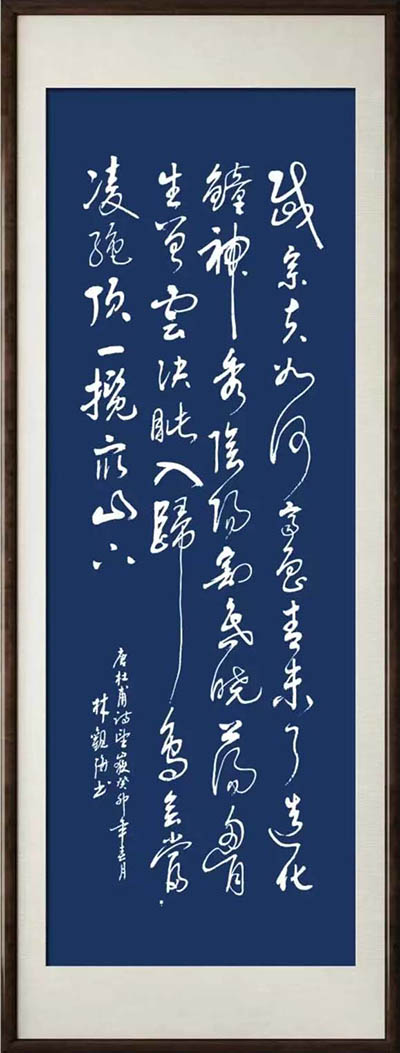 岱宗夫如何齊魯青未了造化
鐘神秀陰陽割昏曉蕩胸
生曾雲決眥入歸鳥會當
凌絶顶一攬眾山小
唐杜甫詩望嶽癸卯年春月
林觀海书